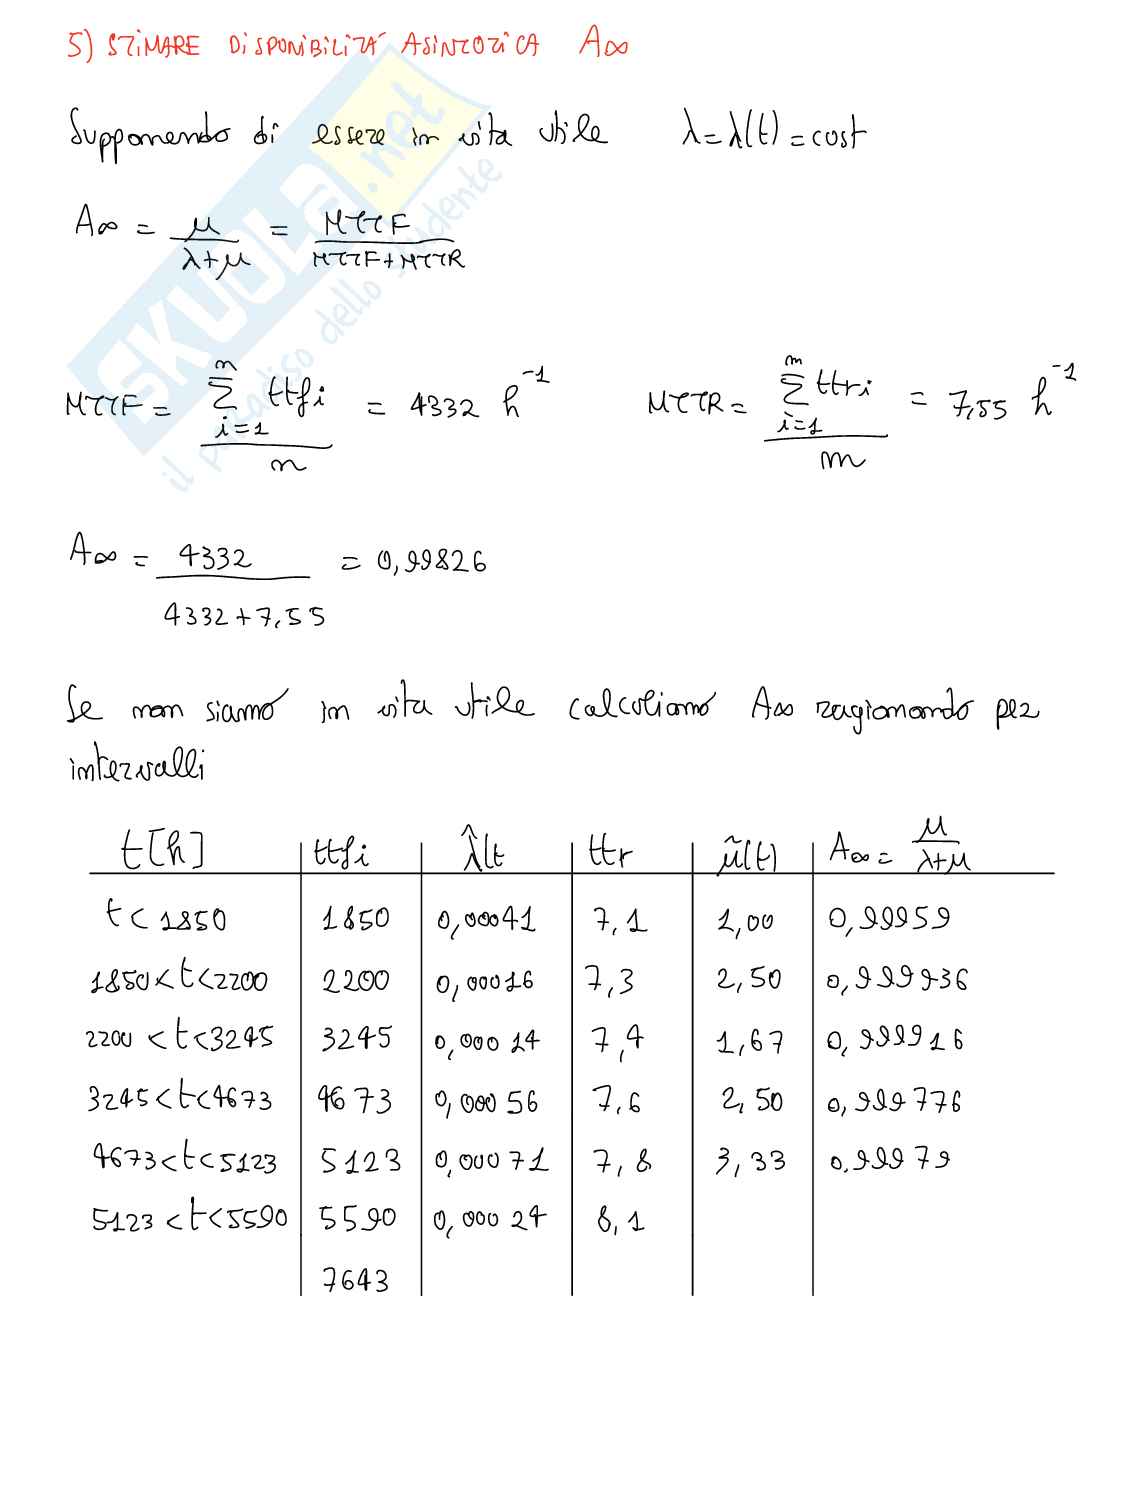 5) STIMARE DISPONIBILITÀ ASINTOTICA A∞
Supponendo di essere in vita utile λ=λ(t)=cost
A∞ = μ/(λ+μ) = MTTF/(MTTF+MTTR)
MTTF = Σ_{i=1}^{n} ttfi / n = 4332 h^-1 MTTR = Σ_{i=1}^{m} ttri / m = 7,55 h^-1
A∞ = 4332/(4332+7,55) = 0,99826
Se non siamo in vita utile calcoliamo A∞ ragionando per
intervalli
t[h] ttfi λ̂(t ttr μ̃(t) A∞ = μ/(λ+μ)
t<1850 1850 0,00041 7,1 1,00 0,99959
1850<t<2200 2200 0,00016 7,3 2,50 0,999936
2200<t<3245 3245 0,00014 7,4 1,67 0,999916
3245<t<4673 4673 0,00056 7,6 2,50 0,999776
4673<t<5123 5123 0,00071 7,8 3,33 0,99979
5123<t<5590 5590 0,00024 8,1
7643
SKUOLA.net
il paradiso dello studente